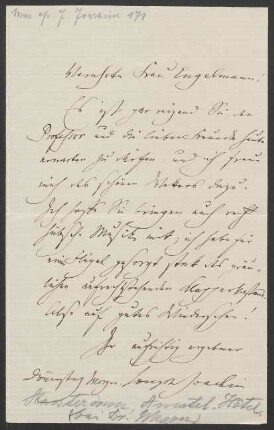 Mus. ep. J. Joachim 171
Verehrte Frau Engelmann!
Es ist gar reizend Sie den
Professor und die lieben Freunde heute
erwarten zu dürfen und ich freue
mich des schönen Wetters dazu.
Ich hoffe Sie bringen auch recht
hübsche Musik mit; ich habe für
einen Flügel gesorgt statt des
aufrechtstehenden
Also auf gutes Wiedersehen!
Ihr aufrichtig ergebner
Dienstag Morgen. Joseph Joachim
Hotel
bei Dr.